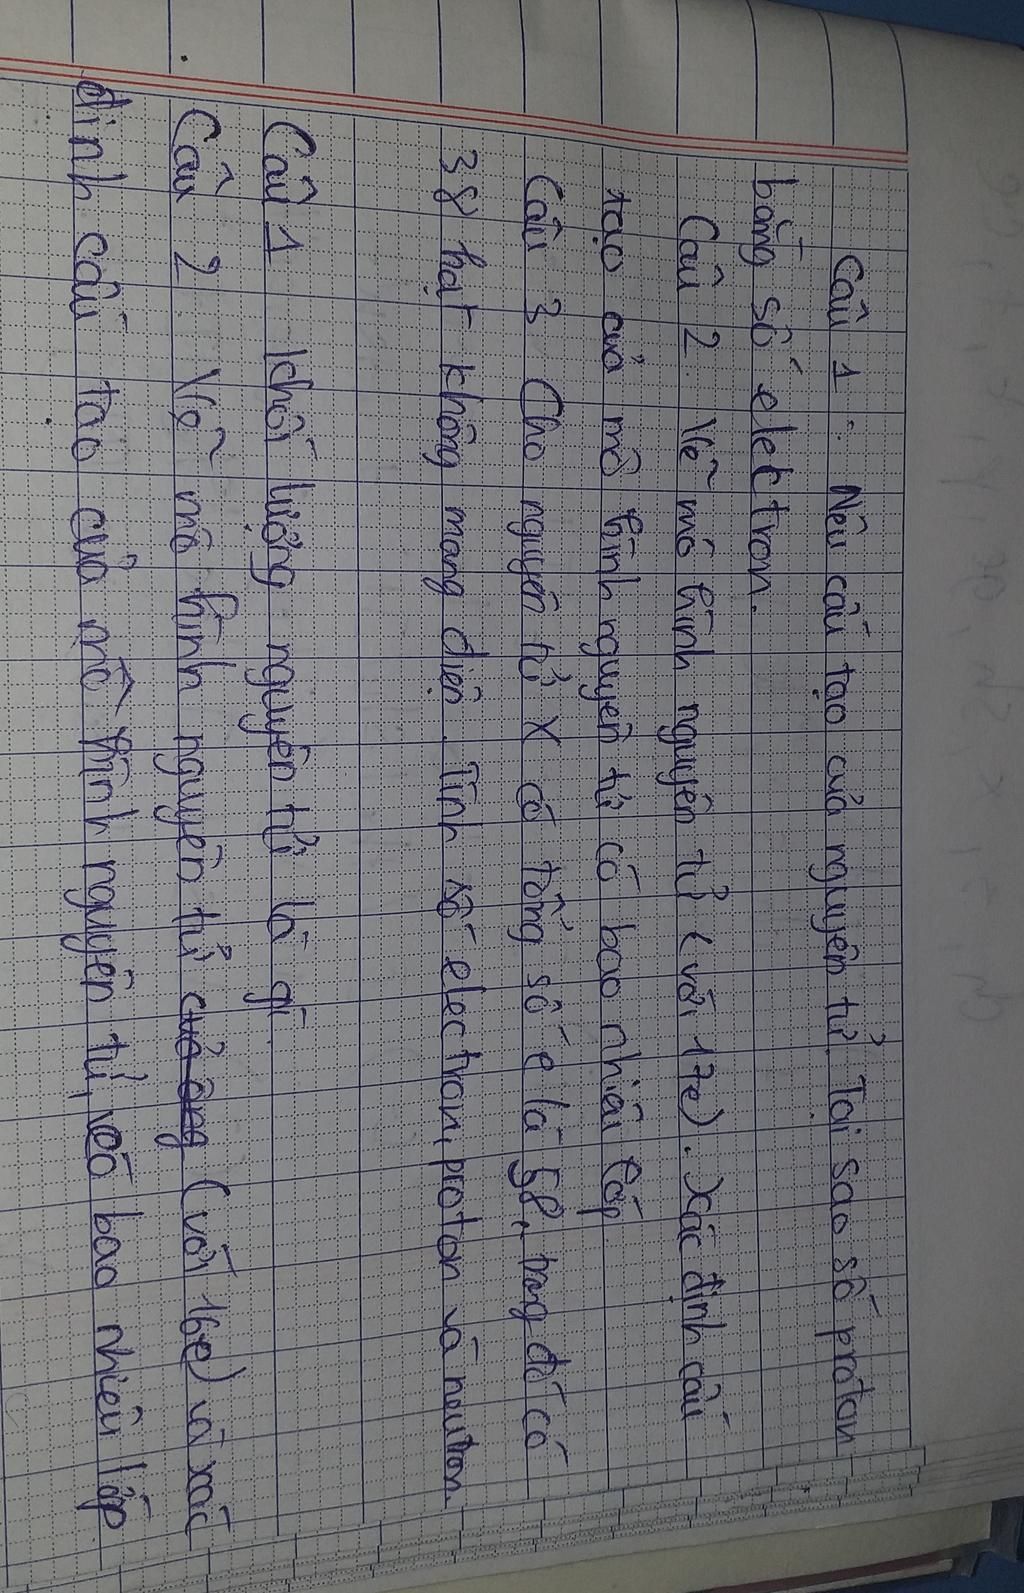 Câu 1: Nêu cấu tạo của nguyên tử. Tại sao số proton
bằng số electron.
Câu 2 Vẽ mô hình nguyên tử (với 17e). Xác định cấu
tạo của mô hình nguyên tử có bao nhiêu lớp
Câu 3 Cho nguyên tử X có tổng số e là 58, trong đó có
38 hạt không mang điện. Tính số electron, proton và neutron.
Câu 1 khối lượng nguyên tử là gì
Câu 2 Vẽ mô hình nguyên tử (với 16e) và xác
định cấu tạo của mô hình nguyên tử, có bao nhiêu lớp